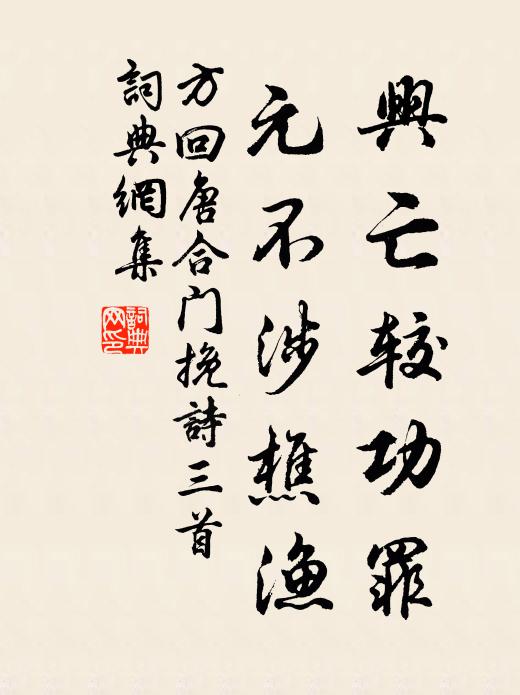 興亡較功罪
元不涉樵漁
方回唐合门挽詩三首
詞典網集
詞典网印